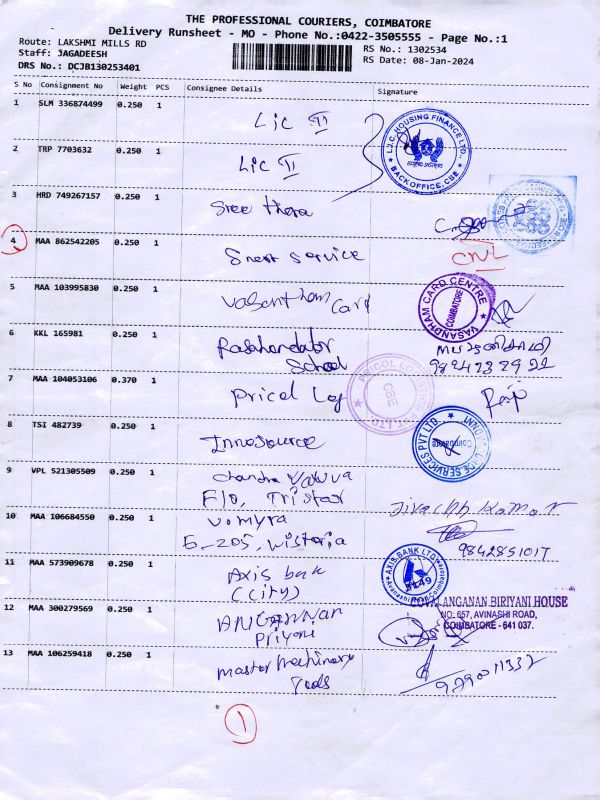 THE PROFESSIONAL COURIERS, COIMBATORE
Delivery Runsheet - MO - Phone No.:0422-3505555 - Page No.:1
Route: LAKSHMI MILLS RD
RS No.: 1302534
Staff: JAGADEESH
RS Date: 08-Jan-2024
DRS No.: DCJB130253401
S No Consignment No Weight PCS Consignee Details Signature
1 SLM 336874499 0.250 1 Lic II
L.I.C. HOUSING FINANCE LTD.,
BACK OFFICE, CBE
2 TRP 7703632 0.250 1 Lic II
3 HRD 749267157 0.250 1 Sree
4 MAA 862542205 0.250 1 service
CNL
5 MAA 103995830 0.250 1 Vasantham Card
VASANDHAM CARD CENTRE
COIMBATORE
6 KKL 165981 0.250 1
School
7 MAA 104053106 0.370 1 Pricol Log
CBE
8 TSI 482739 0.250 1 Innosource
SERVICES PVT LTD.
Coimbatore
9 VPL 521305509 0.250 1 Chandra
F10, Tristar
10 MAA 106684550 0.250 1
E-205, Wisteria
9842851017
11 MAA 573909678 0.250 1 Axis bank
(City)
AXIS BANK LTD
12 MAA 300279569 0.250 1
ANGANNAN BIRIYANI HOUSE
NO. 657, AVINASHI ROAD,
COIMBATORE - 641 037.
13 MAA 106259418 0.250 1 Master Machinery
Tools
1